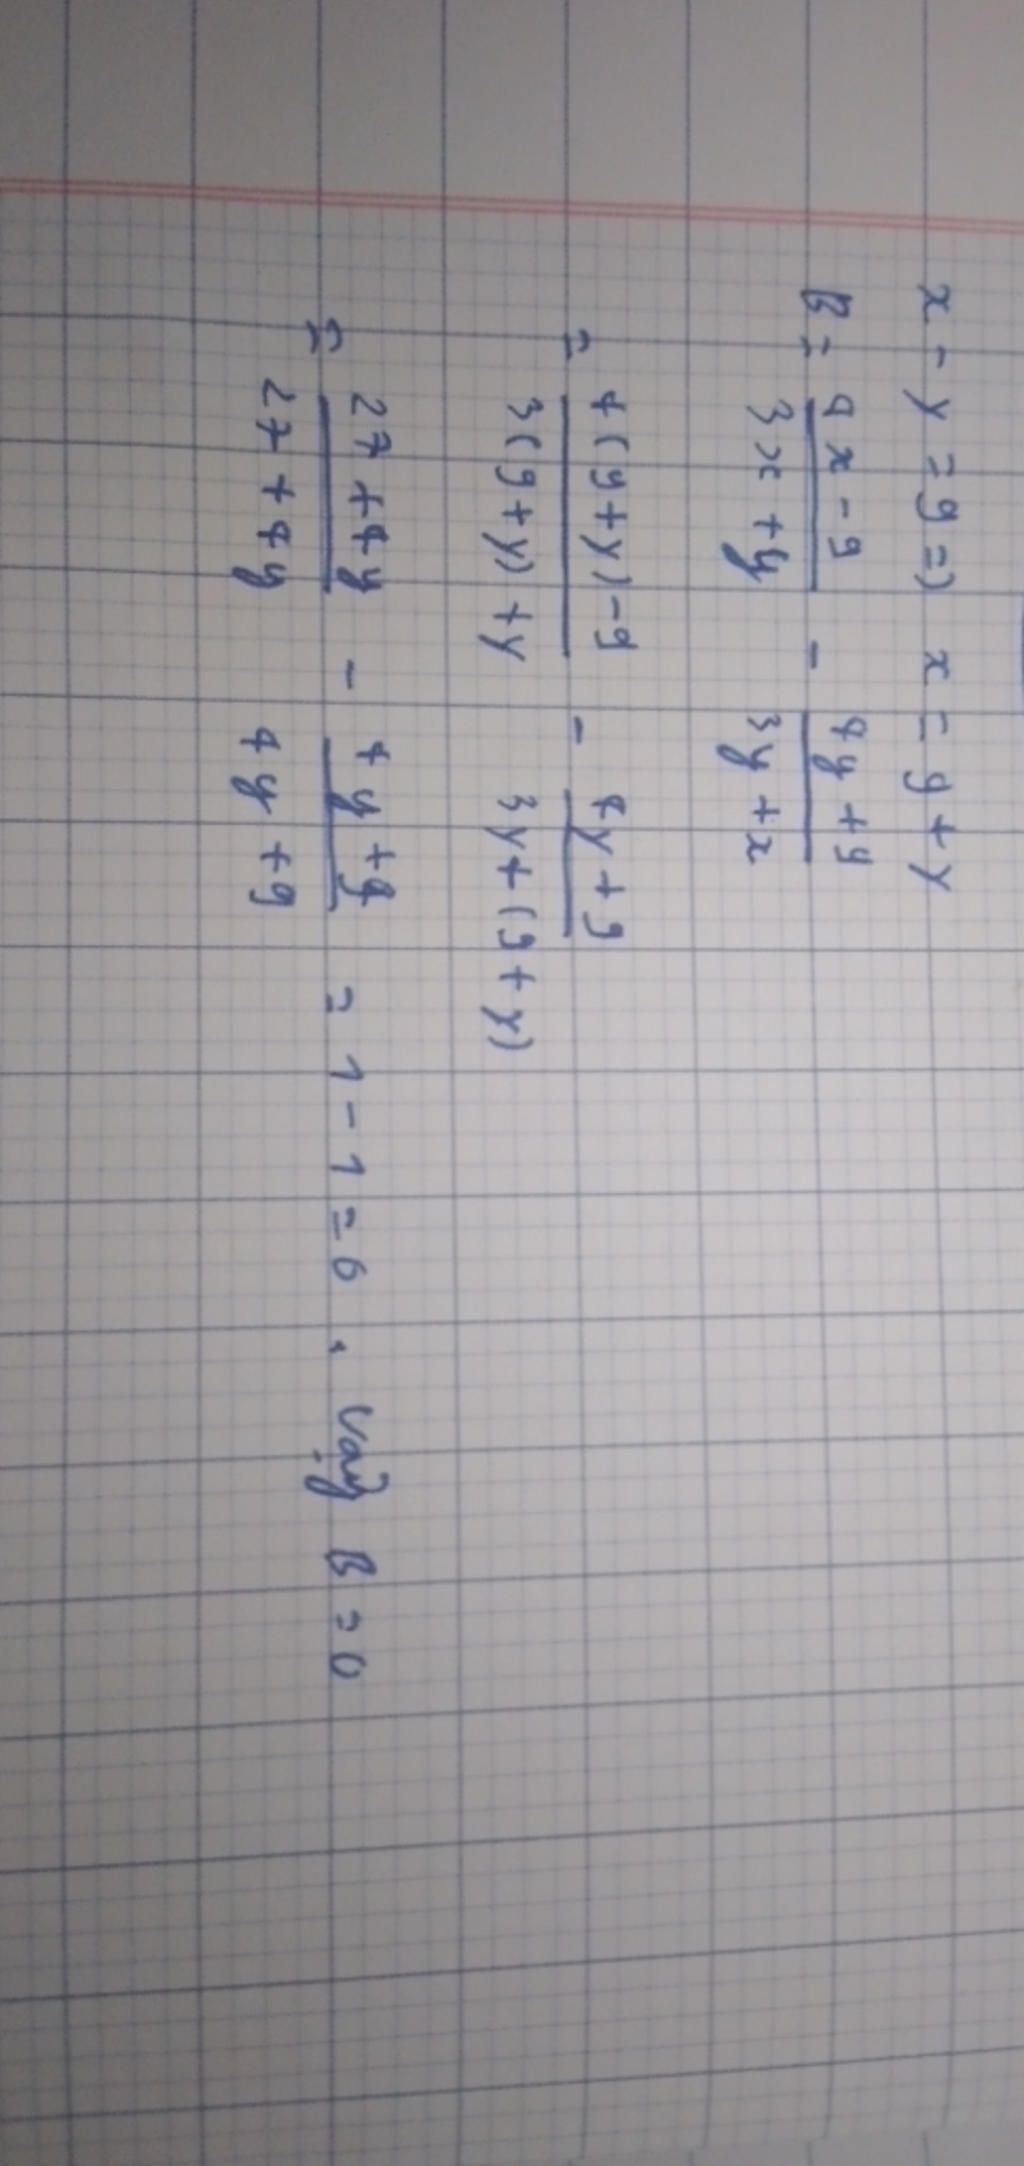 x - y = 9 => x = 9 + y
B = (4x - 9)/(3x + y) - (4y + 9)/(3y + x)
= (4(9 + y) - 9)/(3(9 + y) + y) - (4y + 9)/(3y + (9 + y))
= (27 + 4y)/(27 + 4y) - (4y + 9)/(4y + 9) = 1 - 1 = 0 . Vậy B = 0